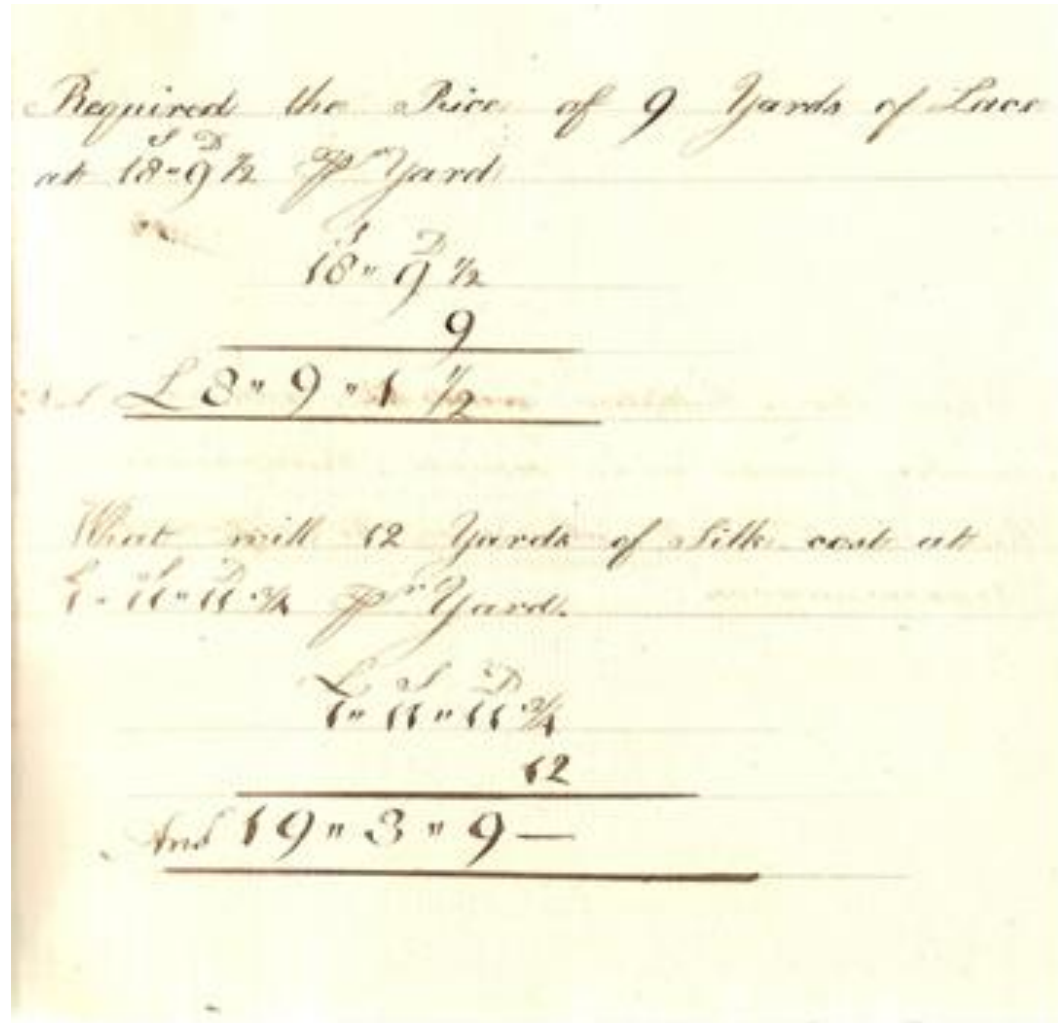 Required the Price of 9 Yards of Lace
S D
at 18"9 1/2 Pr Yard
S D
18"9 1/2
9
£8"9"1 1/2
What will 12 Yards of Silk cost at
L S D
1"11"11 3/4 Pr Yard.
L S D
1"11"11 3/4
12
Ans 19"3"9—